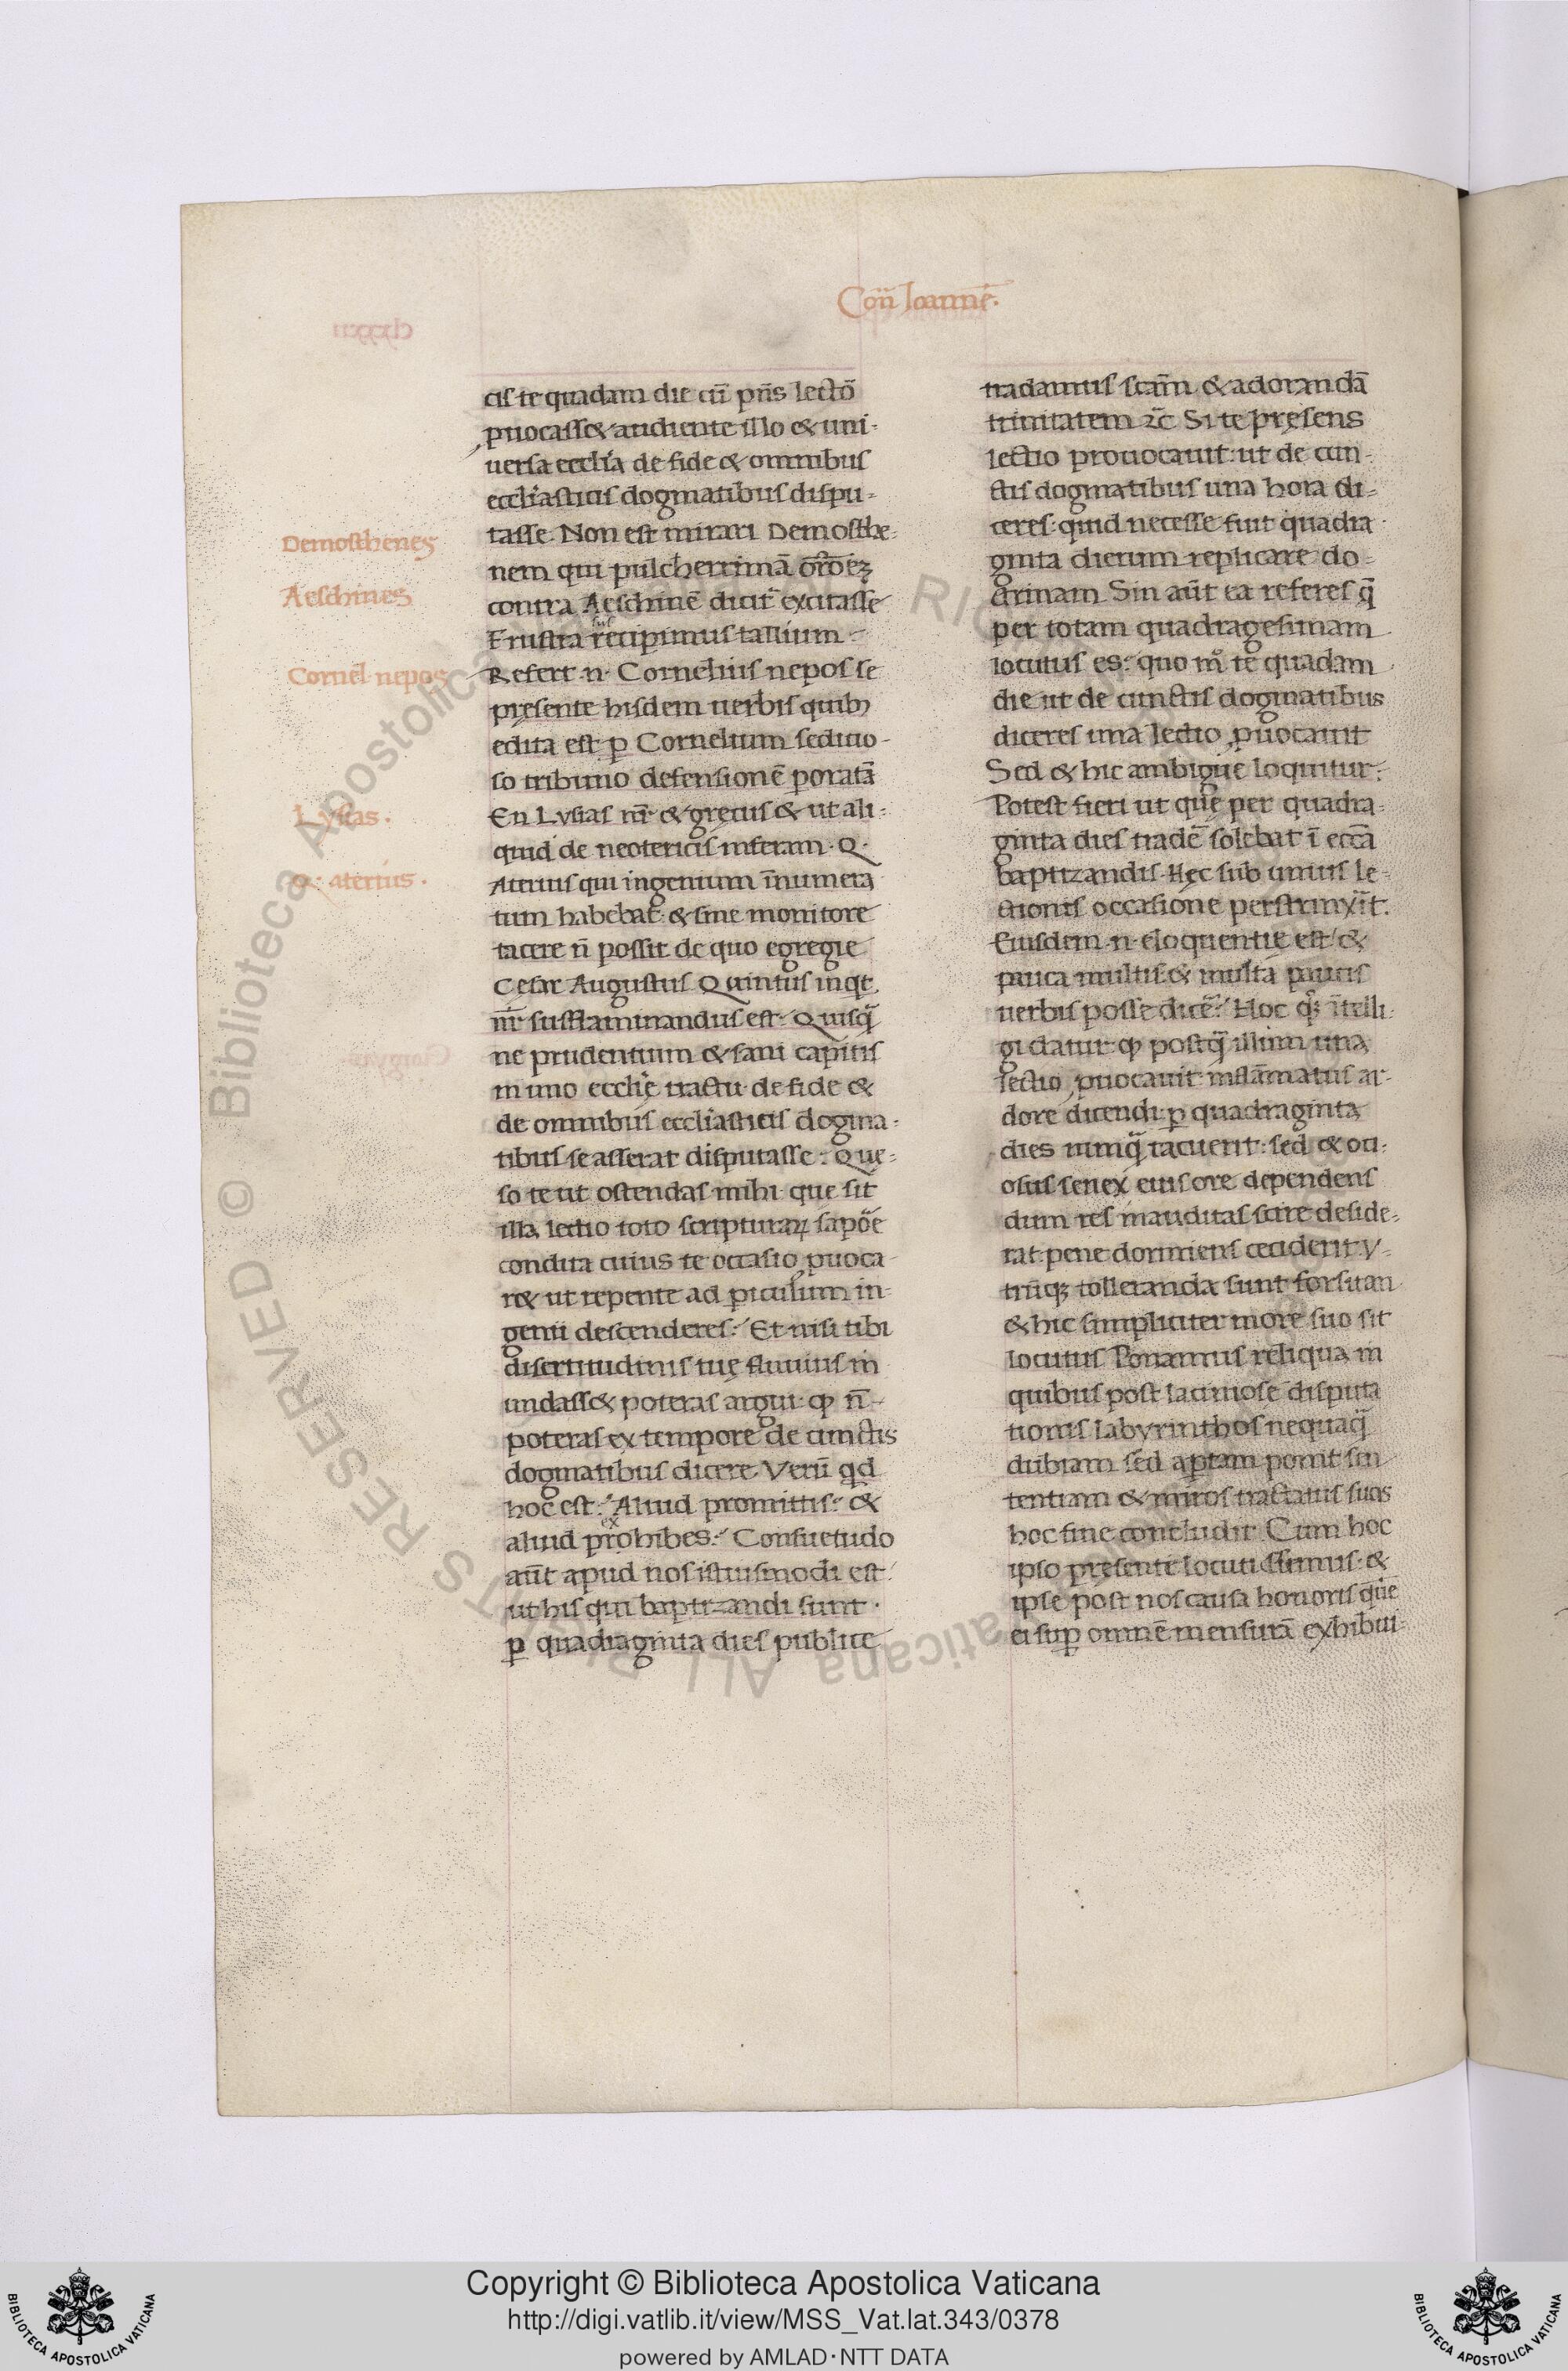 Con̄ Ioannē.
cis te quadam die cū pn̄s lectō
puocass& audiente illo & uni-
uersa eccl̄ia de fide & omnibus
eccl̄iasticis dogmatibus dispu-
tasse. Non est mirari Demosthe-
nem qui pulcherrimā or̄oēꝫ
contra Aeschinē dicit̄ excitasse
Frustra recipimus tallium
Refert .n. Cornelius nepos se
pręsente hisdem uerbis quibꝫ
edita est ꝑ Cornelium seditio-
so tribuno defensionē ꝑoratā
En Lysias nr̄ & gręcus & ut ali-
quid de neotericis inferam. Q.
Aterius qui ingenium īnumera
tum habebat: & sine monitore
tacere n̄ possit de quo egregie
Cesar Augustus Quintus inqt
nr̄ sufflaminandus est. Quisq̄
ne prudentium & sani capitis
in uno eccl̄ię tractu de fide &
de omnibus eccl̄iasticis dogma-
tibus se asserat disputasse. Que-
so te ut ostendas mihi que sit
illa lectio toto scripturaꝝ sapōe
condita cuius te occasio ꝓuoca
r& ut repente ad ꝑiculum in-
genii descenderes. Et nisi tibi
disertitudinis tuę fluuius in
undass& poteras argui ꝙ n̄
poteras ex tempore de cunctis
dogmatibus dicere. Verū qd
hoc est: Aliud promittis: &
aliud prohibes. Consuetudo
aūt apud nos istiusmodi est
ut his qui baptizandi sunt
ꝑ quadraginta dies publice
tradamus scām & adorandā
trinitatem ⁊c̄ Si te pręsens
lectio prouocauit: ut de cun-
ctis dogmatibus una hora di-
ceres: quid necesse fuit quadra
ginta dierum replicare do-
ctrinam Sin aūt ea referes q̄
per totam quadragesimam
locutus es: quo m̊ te quadam
die ut de cunctis dogmatibus
diceres una lectio ꝓuocauit
Sed & hic ambigue loquitur.
Potest fieri ut que per quadra-
ginta dies tradē solebat ī ecc̄a
baptizandis. Hęc sub unius le-
ctionis occasione perstrinxit̄.
Eiusdem .n. eloquentię est &
pauca multis & multa paucis
uerbis posse dicē. Hoc qꝫ ītelli-
gi datur: ꝙ postq̄ illum una
lectio ꝓuocauit inflāmatus ar-
dore dicendi: ꝑ quadraginta
dies numq̄ tacuerit: sed & oci-
osus senex eius ore dependens
dum res inauditas scire deside-
rat: pene dormiens ceciderit. V-
trūqꝫ tolleranda sunt forsitan
& hic simpliciter more suo sit
locutus Ponamus reliqua in
quibus post laciniose disputa
tionis labyrinthos nequaq̄
dubiam sed aꝑtam ponit sen
tentiam & miros tractatus suos
hoc fine concludit Cum hoc
ipso pręsente locuti essemus: &
ipse post nos causa honoris que
ei suꝑ omnē mensurā exhibui-
Demosthenes
Aeschines
Cornel nepos
Lysias.
Q. aterius.
Copyright © Biblioteca Apostolica Vaticana
http://digi.vatlib.it/view/MSS_Vat.lat.343/0378
powered by AMLAD·NTT DATA
BIBLIOTECA APOSTOLICA VATICANA
BIBLIOTECA APOSTOLICA VATICANA